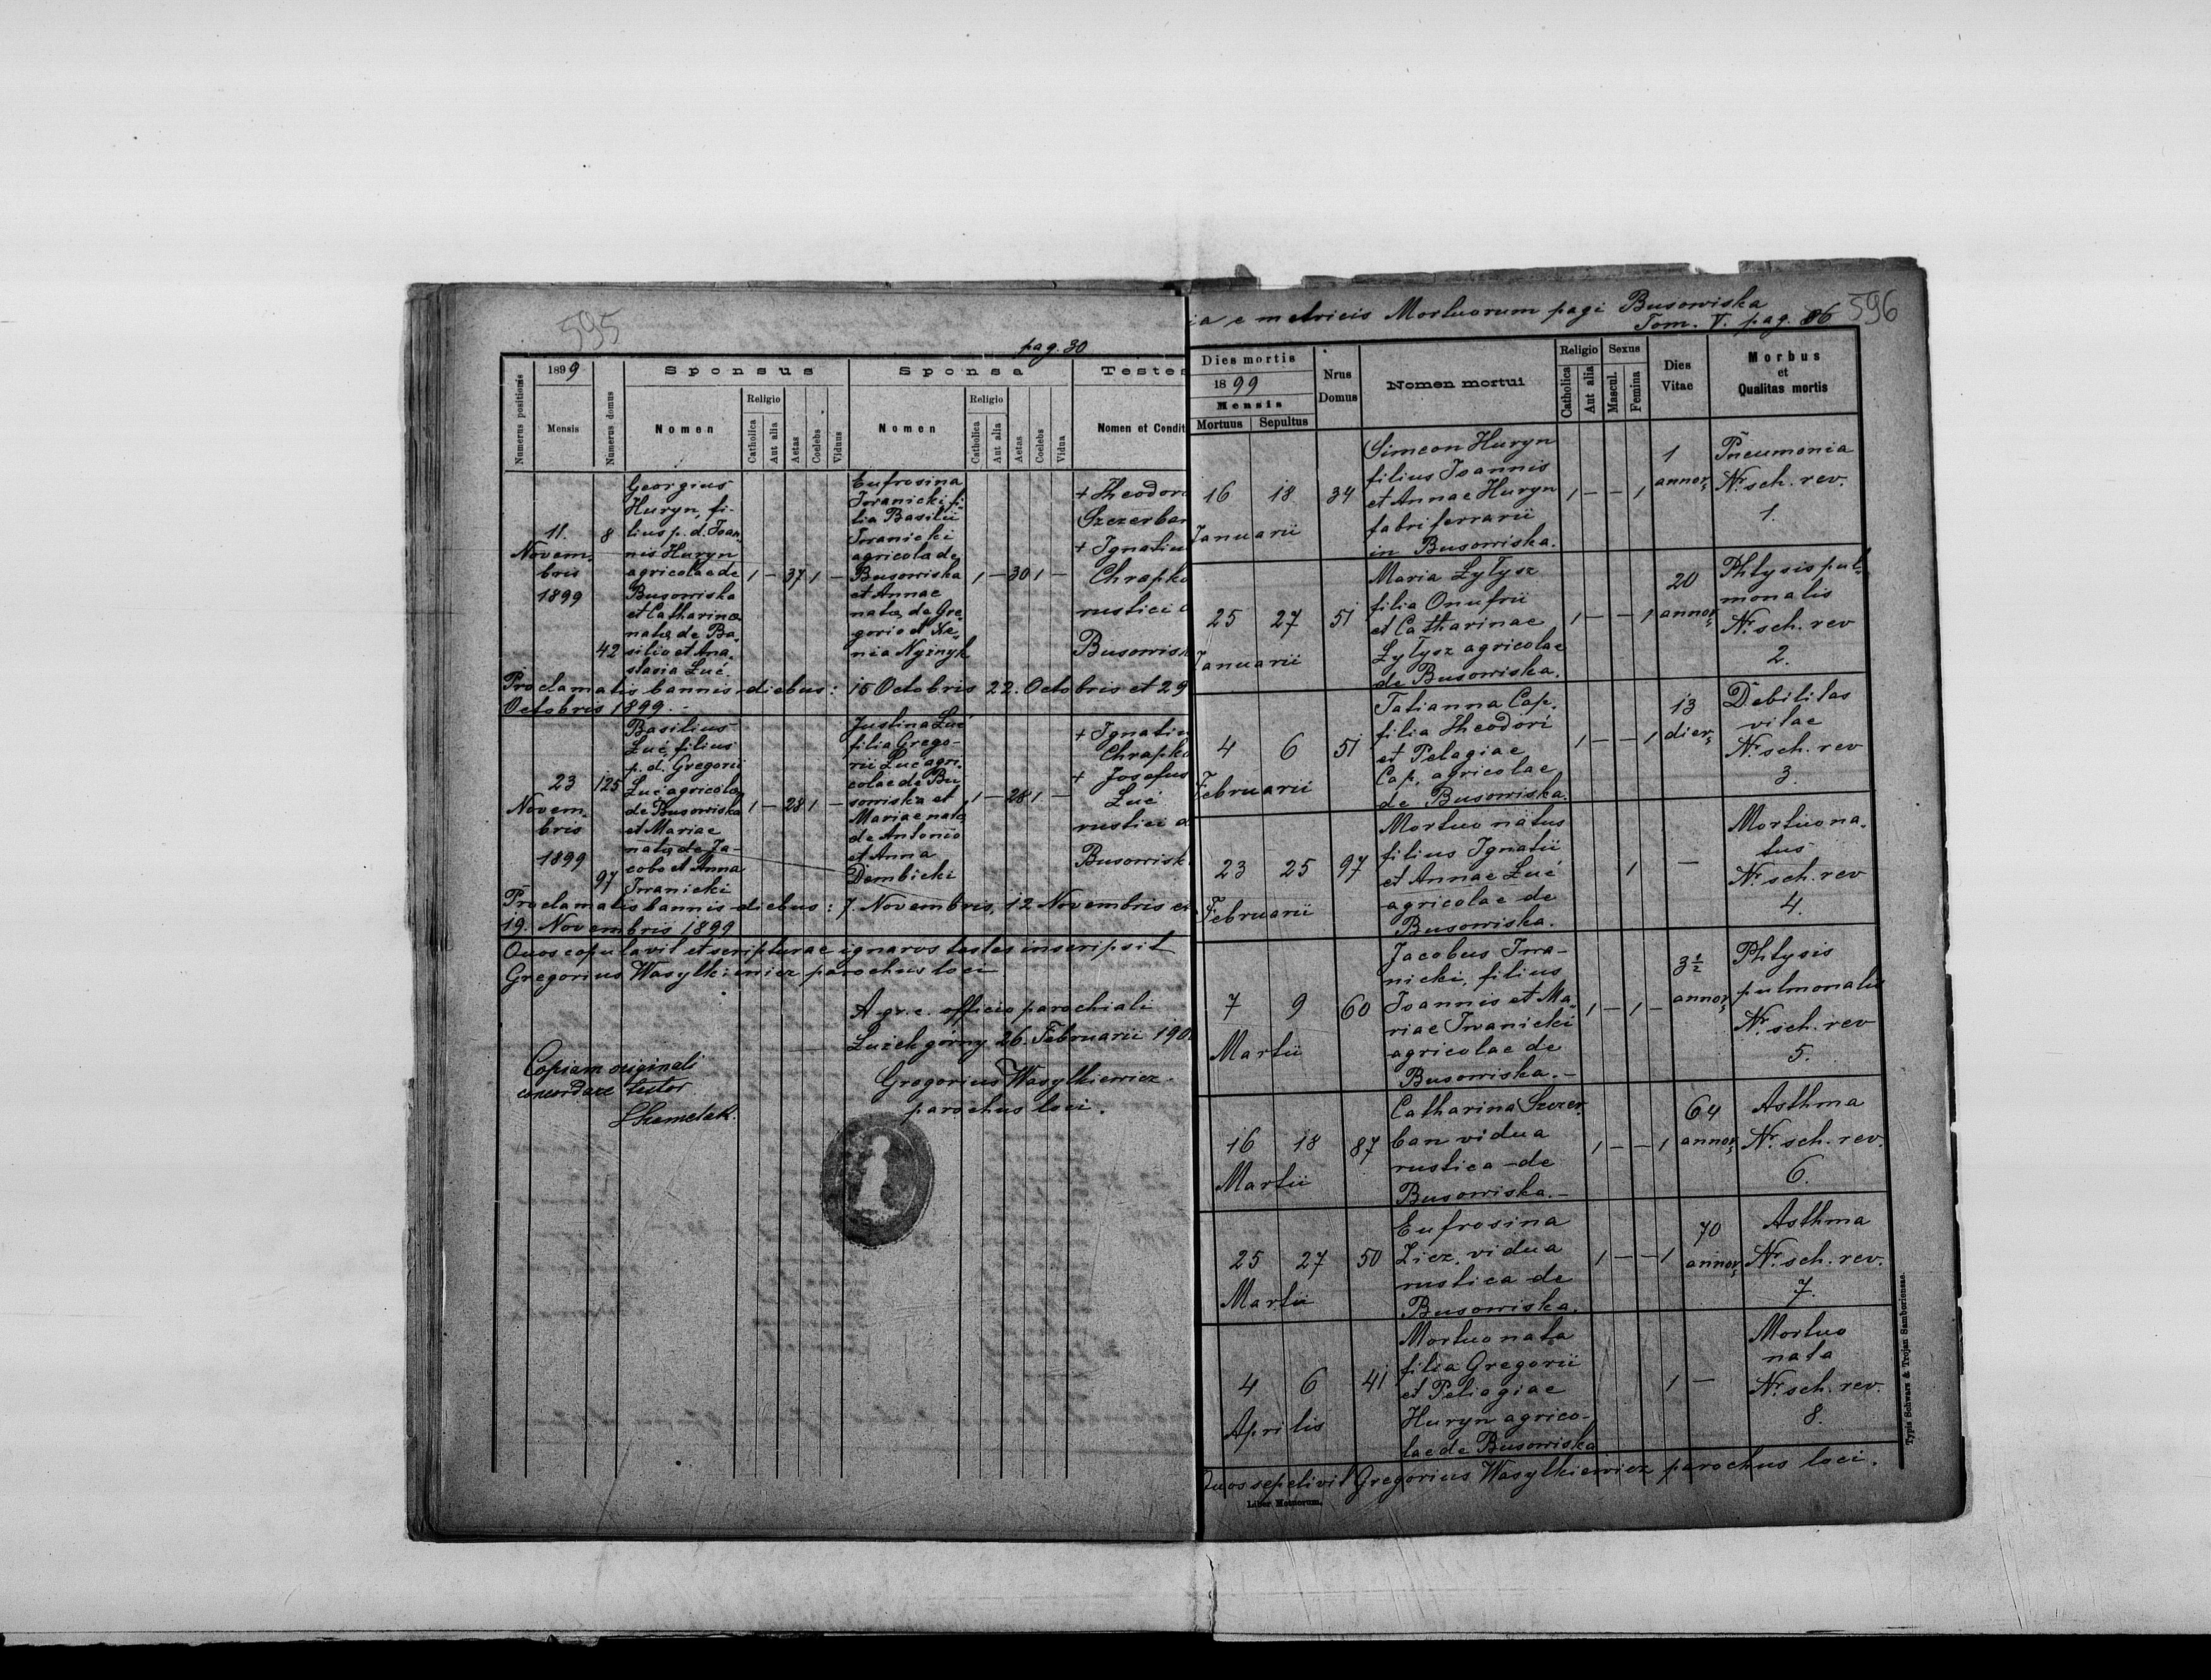 595
pag. 30
Numerus positionis
1899
Mensis
Numerus domus
Sponsus
Nomen
Religio
Catholica
Aut alia
Aetas
Coelebs
Viduus
Sponsa
Nomen
Religio
Catholica
Aut alia
Aetas
Coelebs
Vidua
Testes
Nomen et Condit
11.
Novem-
bris
1899
8
42
Georgius
Huryn, fi-
lius p. d. Joan-
nis Huryn
agricolae de
Busowiska
et Catharinae
natae de Ba-
silio et Ana-
stasia Łuć.
1 — 37 1 —
Eufrosina
Iwanicki fi-
lia Basilii
Iwanicki
agricola de
Busowiska
et Annae
natae de Gre-
gorio et Xe-
nia Nyżnyk
1 — 30 1 —
+ Theodor
Szczerban
+ Ignatiu
Chrapko
rustici
Busowisk
Proclamatis bannis diebus: 15 Octobris 22. Octobris et 29
Octobris 1899.-
23
Novem-
bris
1899
125
97
Basilius
Łuć filius
p. d. Gregorii
Łuć agricolae
de Busowiska
et Mariae
natae de Ja-
cobo et Anna
Iwanicki
1 — 28 1 —
Justina Łuć
filia Grego-
rii Łuć agri-
colae de Bu
sowiska et
Mariae nata
de Antonio
et Anna
Dembicki
1 — 28 1 —
+ Ignatiu
Chrapko
+ Josefus
Łuć
rustici d
Busowisk
Proclamatis bannis diebus: 7. Novembris, 12 Novembris et
19. Novembris 1899
Quos copulavit et scripturae ignaros testes inscripsit
Gregorius Wasylkiewicz parochus loci
A gr. c. officio parochiali
Łużek górny 26. Februarii 190
Gregorius Wasylkiewicz.
parochus loci.
Copiam originali
concordare testor
596
ia e metricis Mortuorum pagi Busowiska
Tom. V. pag. 86
Dies mortis
1899
Mensis
Mortuus
Sepultus
Nrus
Domus
Nomen mortui
Religio
Catholica
Aut alia
Sexus
Mascul.
Femina
Dies
Vitae
Morbus
et
Qualitas mortis
16 18 34
Januarii
Simeon Huryn
filius Joannis
et Annae Huryn
fabri ferrarii
in Busowiska.
1 — — 1
1
annor.
Pneumonia
Nr. sch. rev.
1.
25 27 51
Januarii
Maria Łyłysz
filia Onufrii
et Catharinae
Łyłysz agricolae
de Busowiska.
1 — — 1
20
annor.
Phtysis pul-
monalis
Nr. sch. rev
2.
4 6 51
Februarii
Tatianna Cap.
filia Theodori
et Pelagiae
Cap, agricolae
de Busowiska.
1 — — 1
13
dier.
Debilitas
vitae
Nr. sch. rev
3.
23 25 97
Februarii
Mortuo natus
filius Ignatii
et Annae Łuć
agricolae de
Busowiska.
1 —
Mortuo na-
tus
Nr. sch. rev
4.
7 9 60
Martii
Jacobus Iwa-
nicki, filius
Joannis et Ma-
riae Iwanicki
agricolae de
Busowiska.-
1 — 1 —
3½
annor.
Phtysis
pulmonalis
Nr. sch. rev
5.
16 18 87
Martii
Catharina Szczer
ban vidua
rustica de
Busowiska.-
1 — — 1
64
annor.
Asthma
Nr. sch. rev.
6.
25 27 50
Martii
Eufrosina
vidua
rustica de
Busowiska.
1 — — 1
70
annor.
Asthma
Nr. sch. rev.
7.
4 6 41
Aprilis
Mortuo nata
filia Gregorii
et Pelagiae
Huryn agrico-
lae de Busowiska
1 —
Mortuo
nata
Nr. sch. rev.
8.
Quos sepelivit Gregorius Wasylkiewicz parochus loci.
Typis Schwarz & Trojan Samboriense.